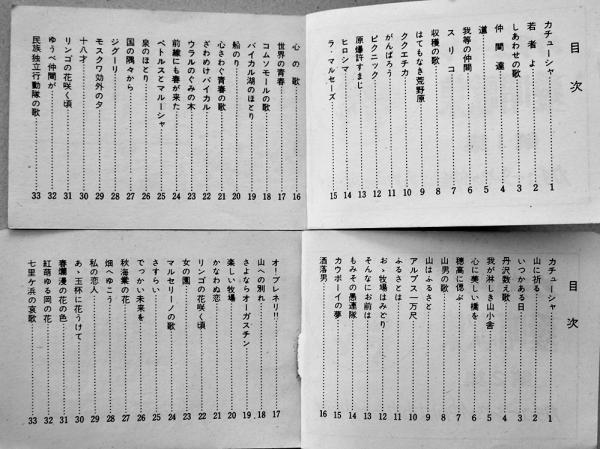 目次
カチューシャ 1
若者よ 2
しあわせの歌 3
仲間達 4
道 5
我等の仲間 6
スリコ 7
収穫の歌 8
はてもなき荒野原 9
ククエチカ 10
がんばろう 11
ピクニック 12
原爆許すまじ 13
ヒロシマ 14
ラ・マルセーズ 15
心の歌 16
世界の青春 17
コムソモールの歌 18
バイカル湖のほとり 19
船のり 20
心さわぐ青春の歌 21
ざわめけバイカル 22
ウラルのぐみの木 23
前線にも春が来た 24
ペトルスとマルーシャ 25
泉のほとり 26
国の隅々から 27
ジグーリ 28
モスクワ効外の夕 29
十八才 30
リンゴの花咲く頃 31
ゆうべ仲間が 32
民族独立行動隊の歌 33
目次
カチューシャ 1
山に祈る 2
いつかある日 3
丹沢数え歌 4
我が淋しき山小舎 5
心に美しい橋を 6
穂高に偲ぶ 7
山男の歌 8
山はふるさと 9
アルプス一万尺 10
ふるさとは 11
おゝ牧場はみどり 12
そんなにお前は 13
もみその愚連隊 14
カウボーイの夢 15
酒落男 16
オ！ブレネリ!! 17
山への別れ 18
さよならオーガスチン 19
楽しい牧場 20
かなわぬ恋 21
リンゴの花咲く頃 22
女の園 23
マルセリーノの歌 24
さすらい 25
でっかい未来を 26
畑へゆこう 27
秋海棠の花 28
私の恋人 29
あゝ玉杯に花うけて 30
春爛漫の花の色 31
紅萌ゆる岡の花 32
七里ケ浜の哀歌 33